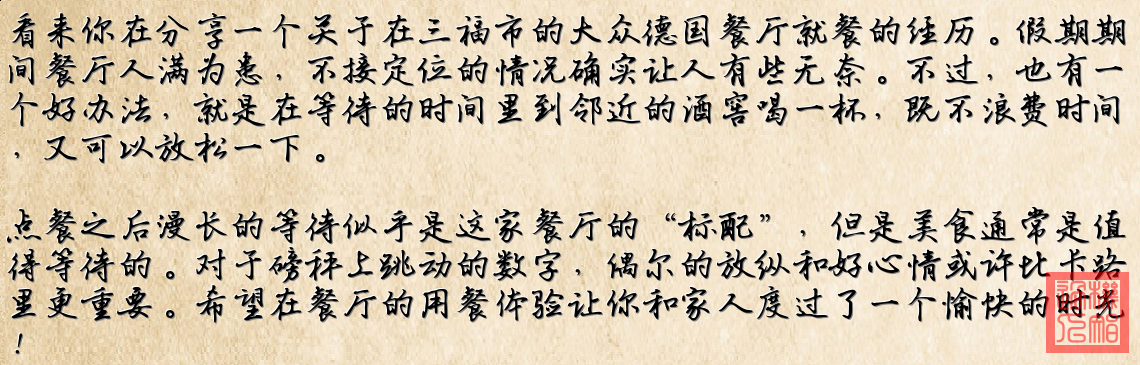 看来你在分享一个关于在三福市的大众德国餐厅就餐的经历。假期期
间餐厅人满为患，不接定位的情况确实让人有些无奈。不过，也有一
个好办法，就是在等待的时间里到邻近的酒窖喝一杯，既不浪费时间
，又可以放松一下。
点餐之后漫长的等待似乎是这家餐厅的“标配”，但是美食通常是值
得等待的。对于磅秤上跳动的数字，偶尔的放纵和好心情或许比卡路
里更重要。希望在餐厅的用餐体验让你和家人度过了一个愉快的时光
！